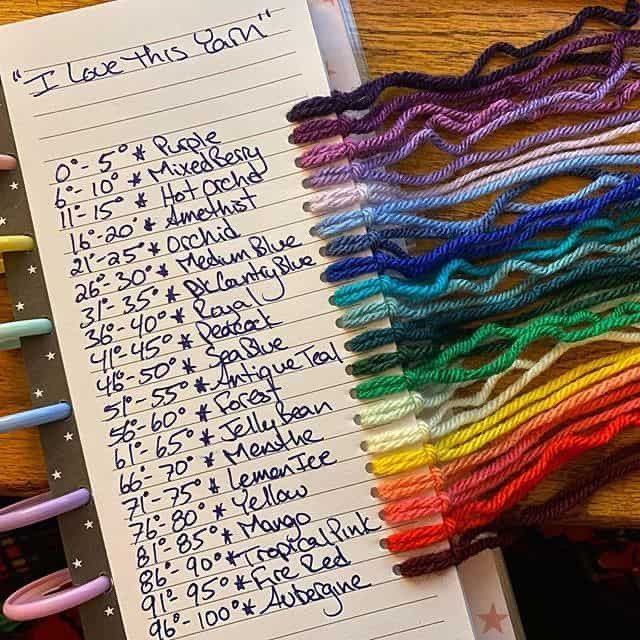 "I Love this Yarn"
0°-5° * Purple
6°-10° * Mixed Berry
11°-15° * Hot Orchid
16°-20° * Amethist
21°-25° * Orchid
26°-30° * Medium Blue
31°-35° * Dk Country Blue
36°-40° * Royal
41°-45° * Peacock
46°-50° * Sea Blue
51°-55° * Antique Teal
56°-60° * Forest
61°-65° * Jelly Bean
66°-70° * Menthe
71°-75° * Lemon Ice
76°-80° * Yellow
81°-85° * Mango
86°-90° * Tropical Pink
91°-95° * Fire Red
96°-100° * Aubergine